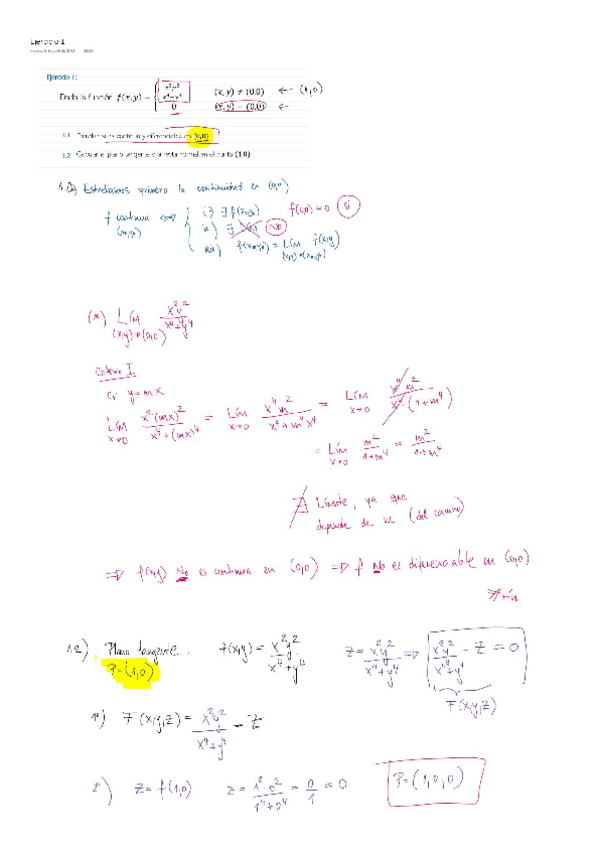 Ejercicio 1
Ejercicio 1:
Dada la función f(x,y) = { x²y² / x⁴+y⁴ (x,y) ≠ (0,0) ← (1,0)
0 (x,y) = (0,0) ←
1.1 Estudiar si es continua y diferenciable en (0,0)
1.2 Calcular el plano tangente y la recta normal en el punto (1,0)
Estudiamos primero la continuidad en (0,0)
f continua ⟺ { i) ∃ f(x₀,y₀) f(0,0) = 0 Si
(x₀,y₀) ii) ∃ Lím No
iii) f(x₀,y₀) = Lím f(x,y)
(x,y)→(x₀,y₀)
(*) Lím x²y² / x⁴+y⁴
(x,y)→(0,0)
Criterio I
y = mx
Lím x²(mx)² / x⁴+(mx)⁴ = Lím x⁴m² / x⁴+m⁴x⁴ = Lím x⁴m² / x⁴·(1+m⁴)
x→0 x→0 x→0
= Lím m² / 1+m⁴ = m² / 1+m⁴
x→0
∄ Límite, ya que
depende de m (del camino)
⇒ f(x,y) No es continua en (0,0) ⇒ f No es diferenciable en (0,0)
1.2) Plano tangente. f(x,y) = x²y² / x⁴+y⁴ z = x²y² / x⁴+y⁴ ⇒ x²y² / x⁴+y⁴ - z = 0
P=(1,0) F(x,y,z)
1º) F(x,y,z) = x²y² / x⁴+y⁴ - z
2º) z = f(1,0) z = 1²·0² / 1⁴+0⁴ = 0 / 1 = 0 P=(1,0,0)